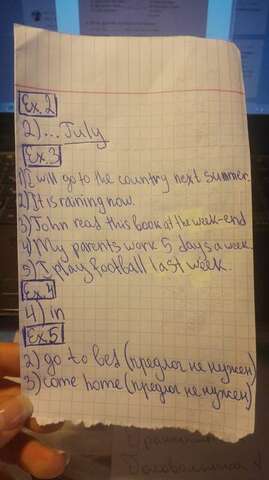 Ex.2
2)... July
Ex.3
1) I will go to the country next summer.
2) It is raining now.
3) John read this book at the week-end
4) My parents work 5 days a week.
5) I play football last week.
Ex.4
4) in
Ex.5
2) go to bed (предлог не нужен)
3) come home (предлог не нужен)